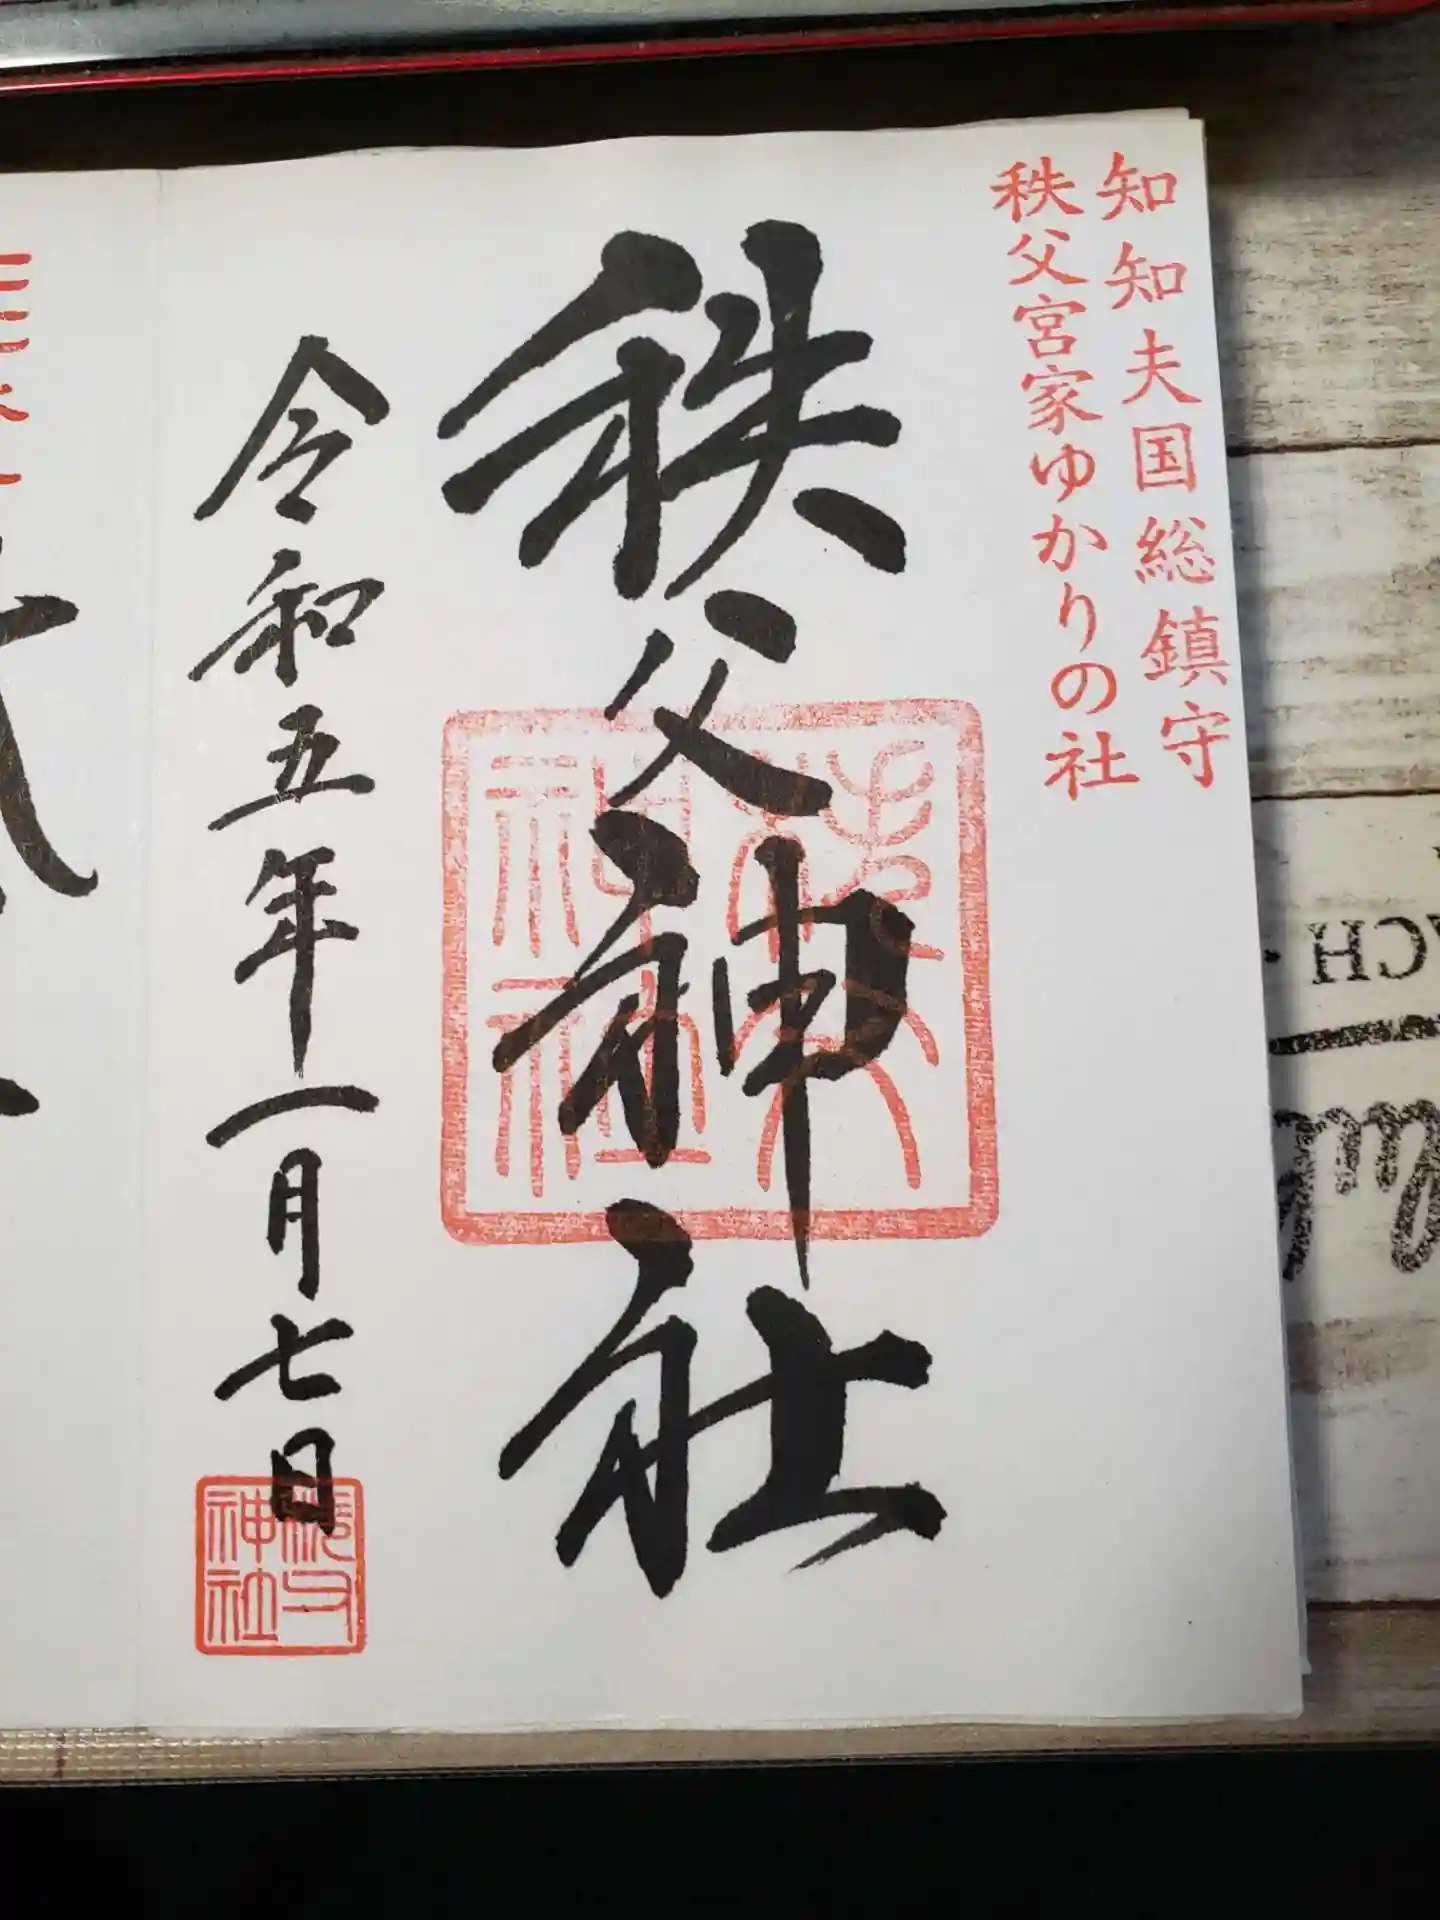 知知夫国総鎮守
秩父宮家ゆかりの社
秩父神社
令和五年一月七日
秩父
神社
ACH